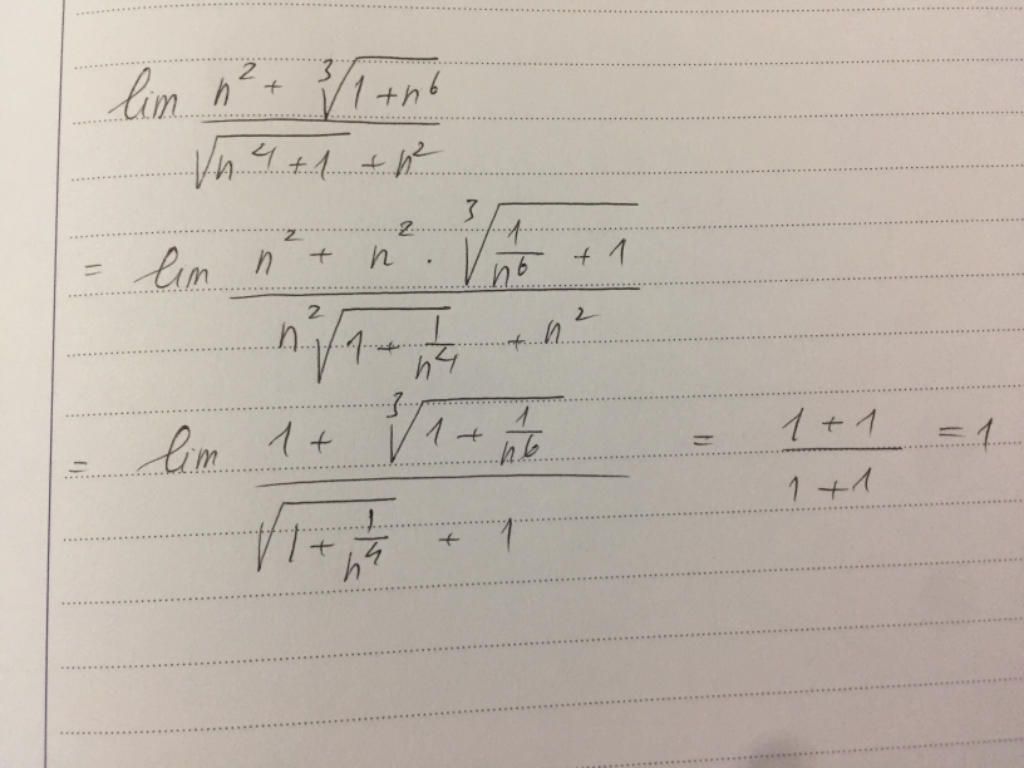 lim (n² + ∛(1 + n⁶)) / (√(n⁴ + 1) + n²)
= lim (n² + n² · ∛(1/n⁶ + 1)) / (n² √(1 + 1/n⁴) + n²)
= lim (1 + ∛(1 + 1/n⁶)) / (√(1 + 1/n⁴) + 1) = (1 + 1) / (1 + 1) = 1